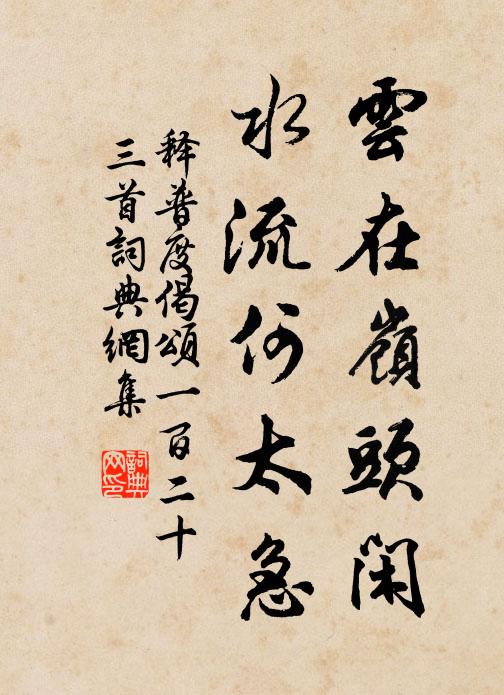 雲在嶺頭閑
水流何太急
释普度偈頌一百二十
三首詞典網集
詞典
网印